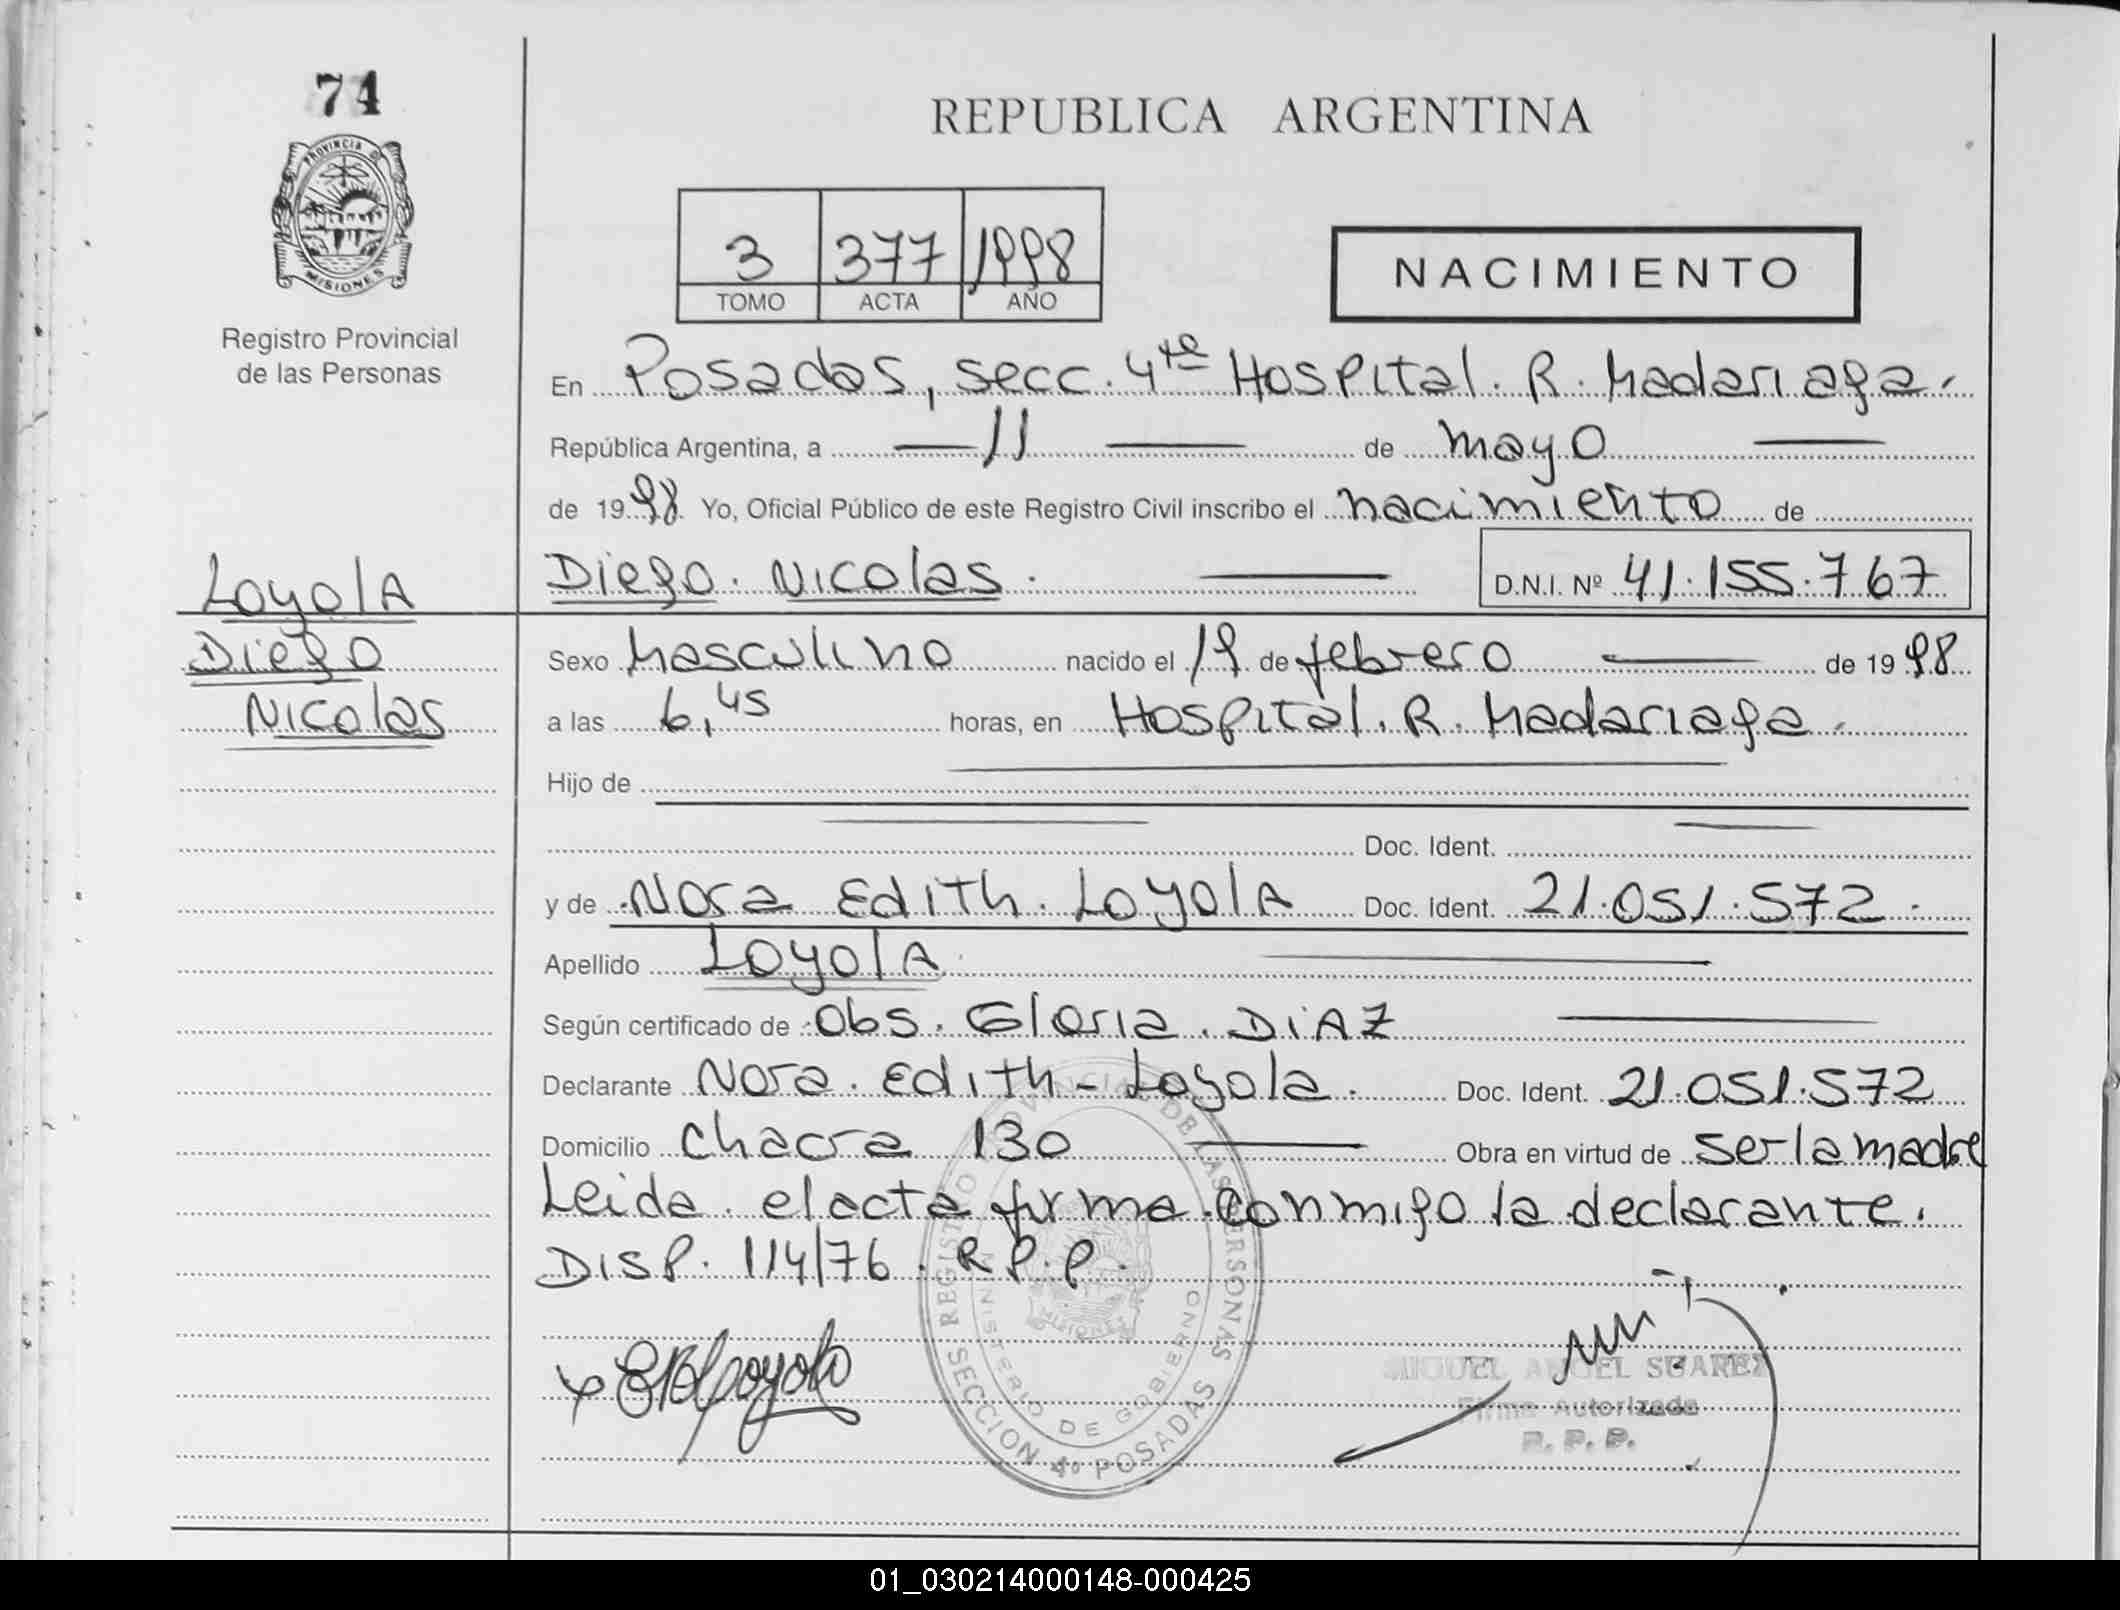 74
PROVINCIA D
MISIONES
Registro Provincial
de las Personas
REPUBLICA ARGENTINA
3 377 1998
TOMO ACTA AÑO
NACIMIENTO
En Posadas, secc. 4ta Hospital. R. Madariaga.
República Argentina, a — 11 — de mayo —
de 1998 Yo, Oficial Público de este Registro Civil inscribo el nacimiento de
Diego. Nicolas. — D.N.I. Nº 41.155.767
Loyola
Diego
Nicolas
Sexo Masculino nacido el 19 de febrero — de 1998
a las 6,45 horas, en Hospital. R. Madariaga.
Hijo de
Doc. Ident.
y de Nora Edith. Loyola Doc. Ident. 21.051.572.
Apellido Loyola
Según certificado de Obs. Gloria. DiAZ
Declarante Nora. Edith - Loyola. Doc. Ident. 21.051.572
Domicilio chacra 130 — Obra en virtud de ser la madre
Leida. el acta firma conmigo la declarante.
DISP. 114/76. R.P.P.
REGISTRO PROVINCIAL DE LAS PERSONAS
MINISTERIO DE GOBIERNO
MISIONES
SECCION 4º POSADAS
MIGUEL ANGEL SUAREZ
Firma Autorizada
R. P. P.
01_030214000148-000425